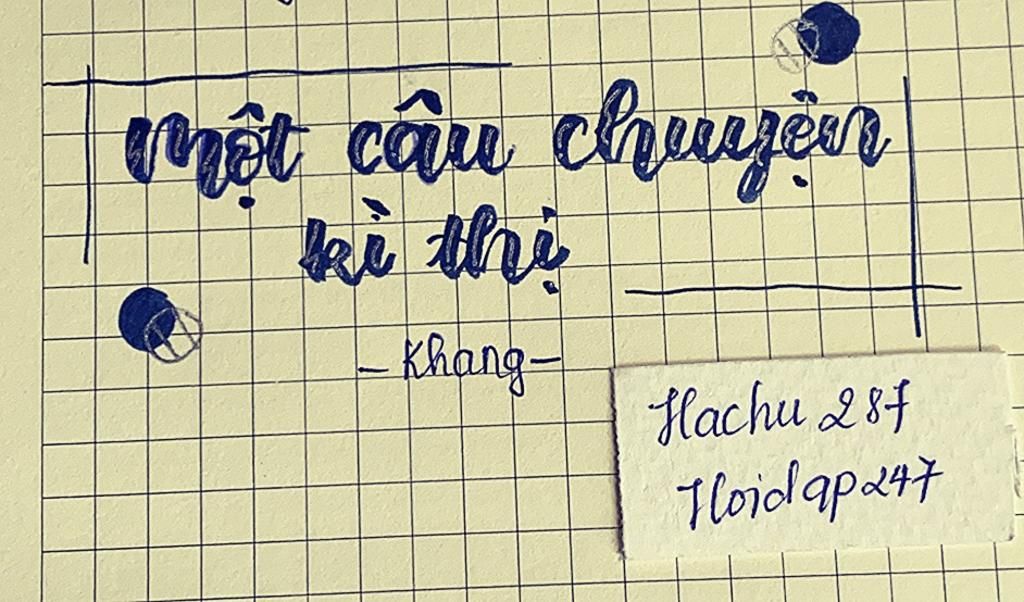 một câu chuyện
kì thị
- Khang -
Hachu 287
Hoidap247